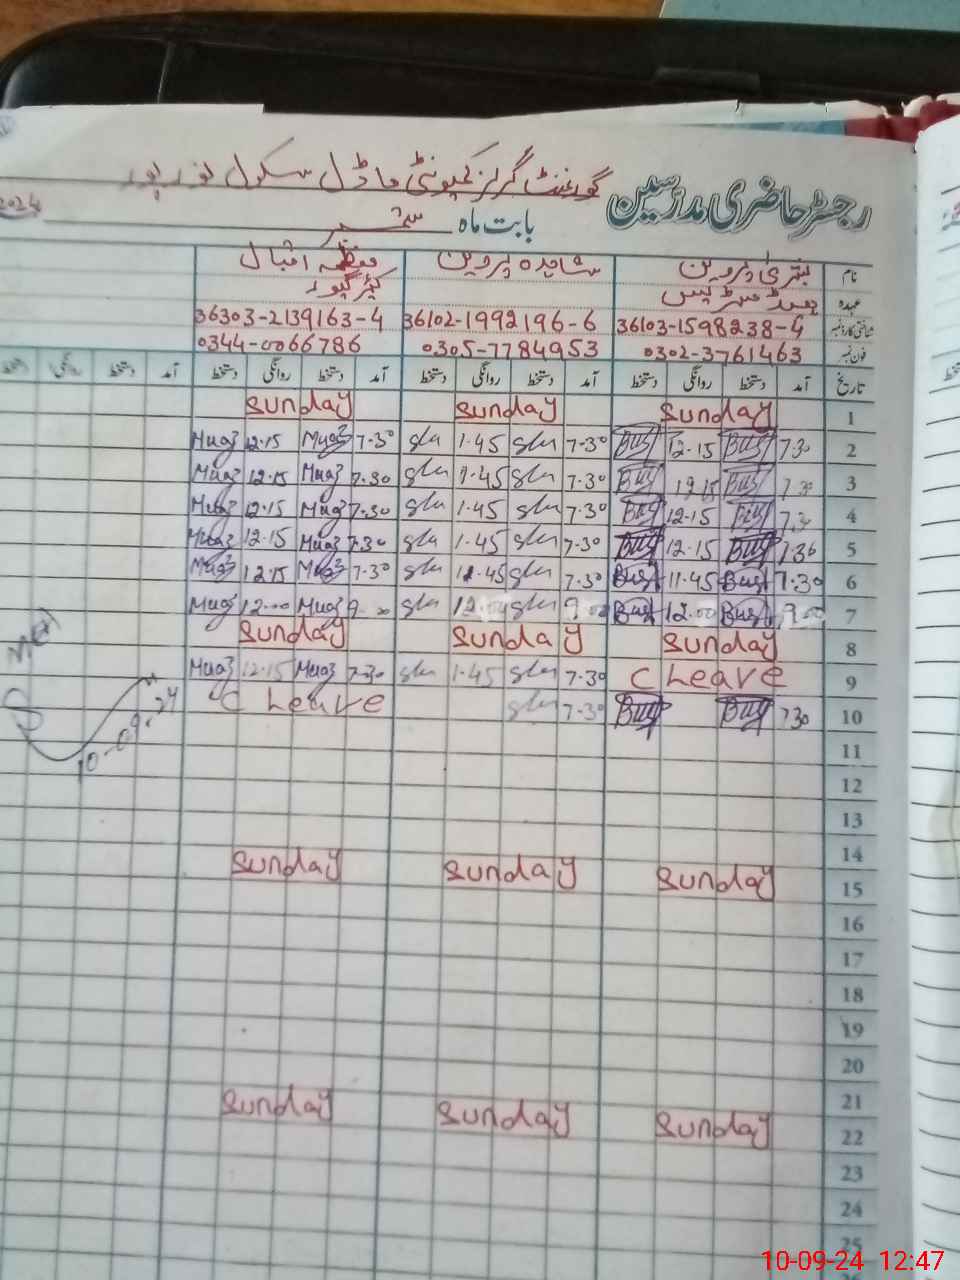 رجسٹر حاضری مدرسین گورنمنٹ گرلز کمیونٹی ماڈل سکول نور پور
بابت ماہ ستمبر 2024
نام بشریٰ پروین شاہدہ پروین معظمہ اقبال
عہدہ ہیڈ مسٹریس کیئر گیور
شناختی کارڈ نمبر 36103-1598238-4 36102-1992196-6 36303-2139163-4
فون نمبر 0302-3761463 0305-7784953 0344-0066786
تاریخ آمد دستخط روانگی دستخط آمد دستخط روانگی دستخط آمد دستخط روانگی دستخط آمد دستخط روانگی دستخط
1 Sunday Sunday Sunday
2 7.30 12.15 7.30 1.45 7.30 Muaz 12.15 Muaz
3 7.30 7.30 1.45 7.30 Muaz 12.15 Muaz
4 7.30 12.15 7.30 1.45 7.30 Muaz 12.15 Muaz
5 7.30 12.15 7.30 1.45 7.30 Muaz 12.15 Muaz
6 7.30 11.45 7.30 11.45 7.30 Muaz 12.15 Muaz
7 9.00 12.00 9.00 12.00 9.00 Muaz 12.00 Muaz
8 Sunday Sunday Sunday
9 C Leave 7.30 1.45 7.30 Muaz 12.15 Muaz
10 7.30 7.30 C Leave
10-09-24
11
12
13
14
15 Sunday Sunday Sunday
16
17
18
19
20
21
22 Sunday Sunday Sunday
23
24
25
10-09-24 12:47